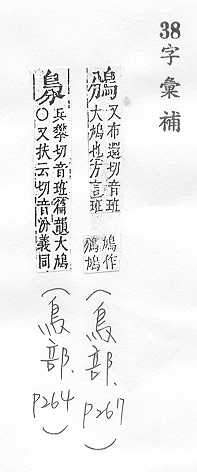 38字彙補
鳻
又布還切音班
大鳩也方言班
鳩作
鳻鳩
(鳥部.P267)
兵攀切音班篇韻大鳩
〇又扶云切音汾義同
(鳥部.P264)